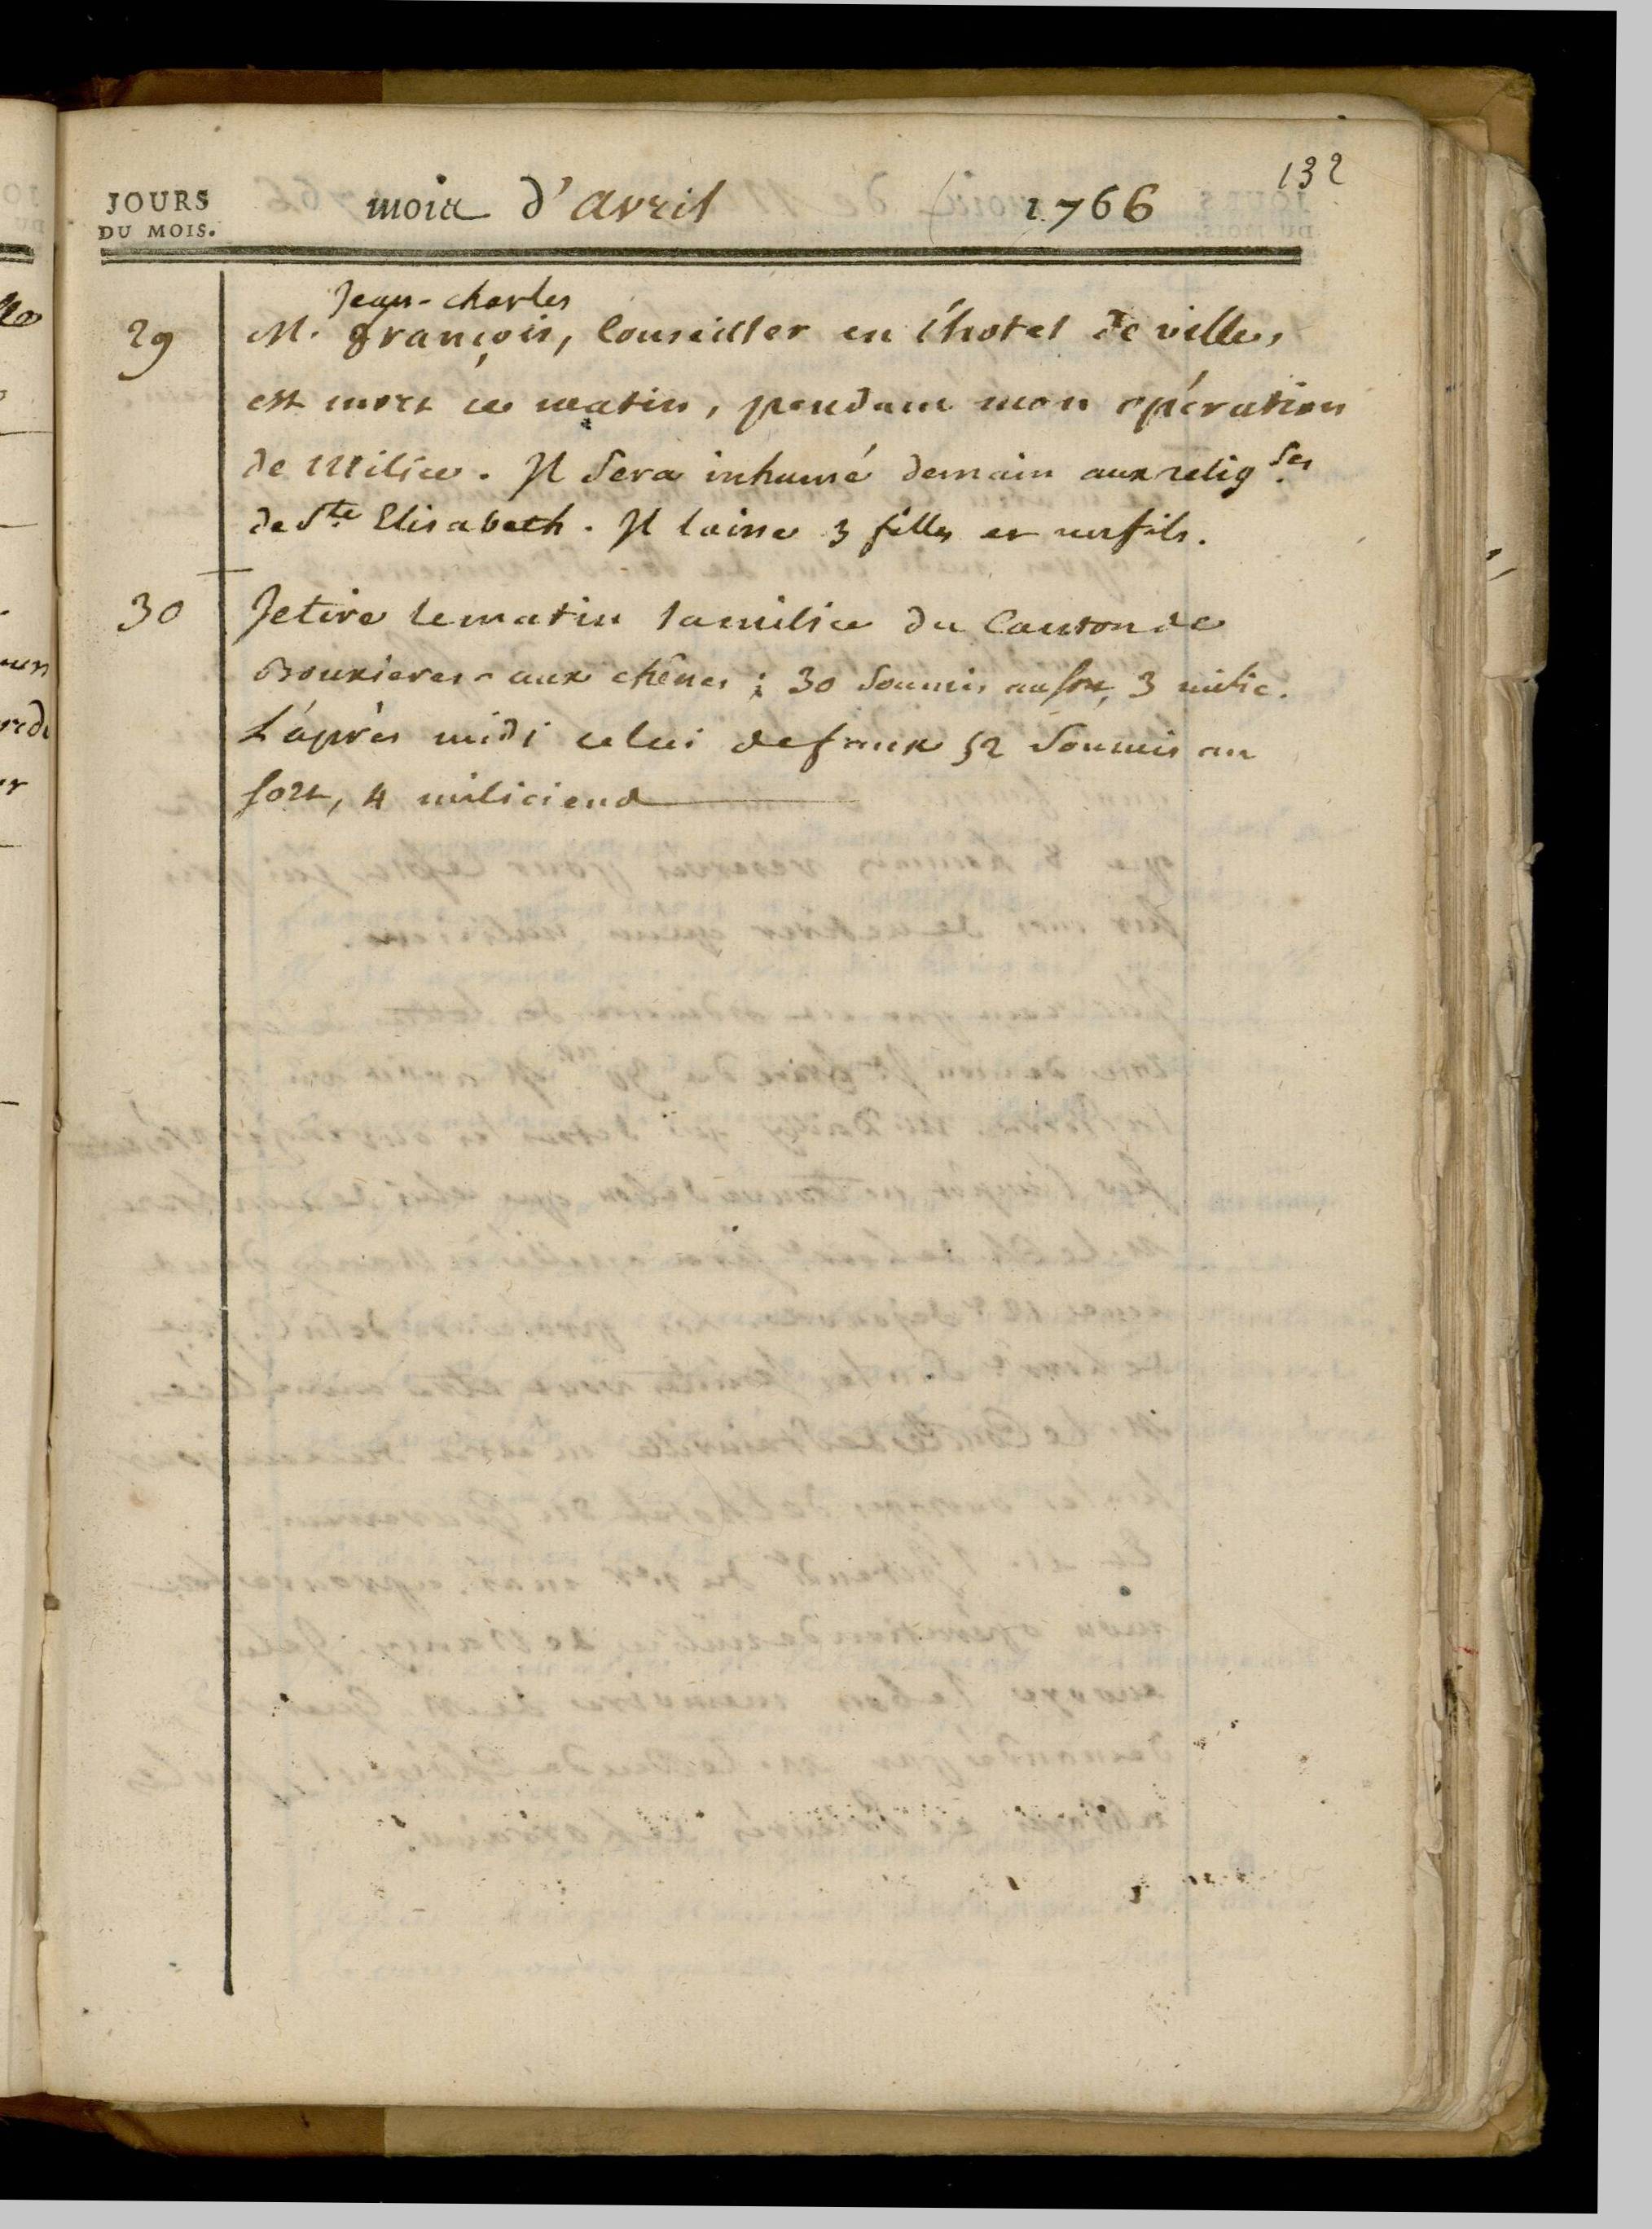 132
JOURS
DU MOIS.
mois d'avril 1766
Jean-charles
29 M. françois, Conseiller en l'hotel de ville,
est mort ce matin, pendant mon opération
de Milice. Il sera inhumé demain aux relig.ses
de Ste Elisabeth. Il laisse 3 filles et un fils.
30 Je tire le matin la milice du Canton de
Bouxieres-aux chênes ; 30 soumis au sort, 3 milic.
L'après midi celui de faux 52 soumis au
sort, 4 miliciens